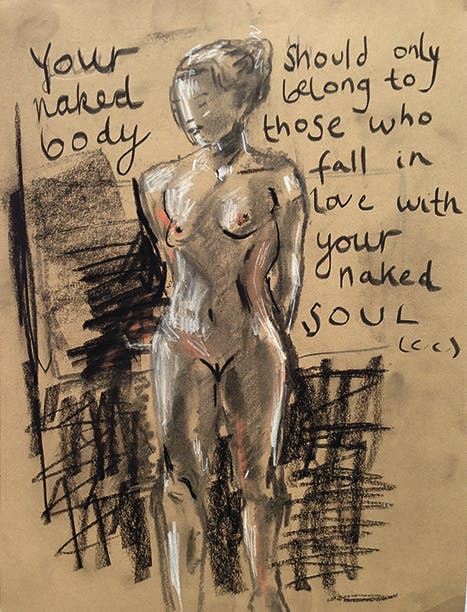 Your
naked
body
should only
belong to
those who
fall in
love with
your
naked
SOUL
(c.c.)